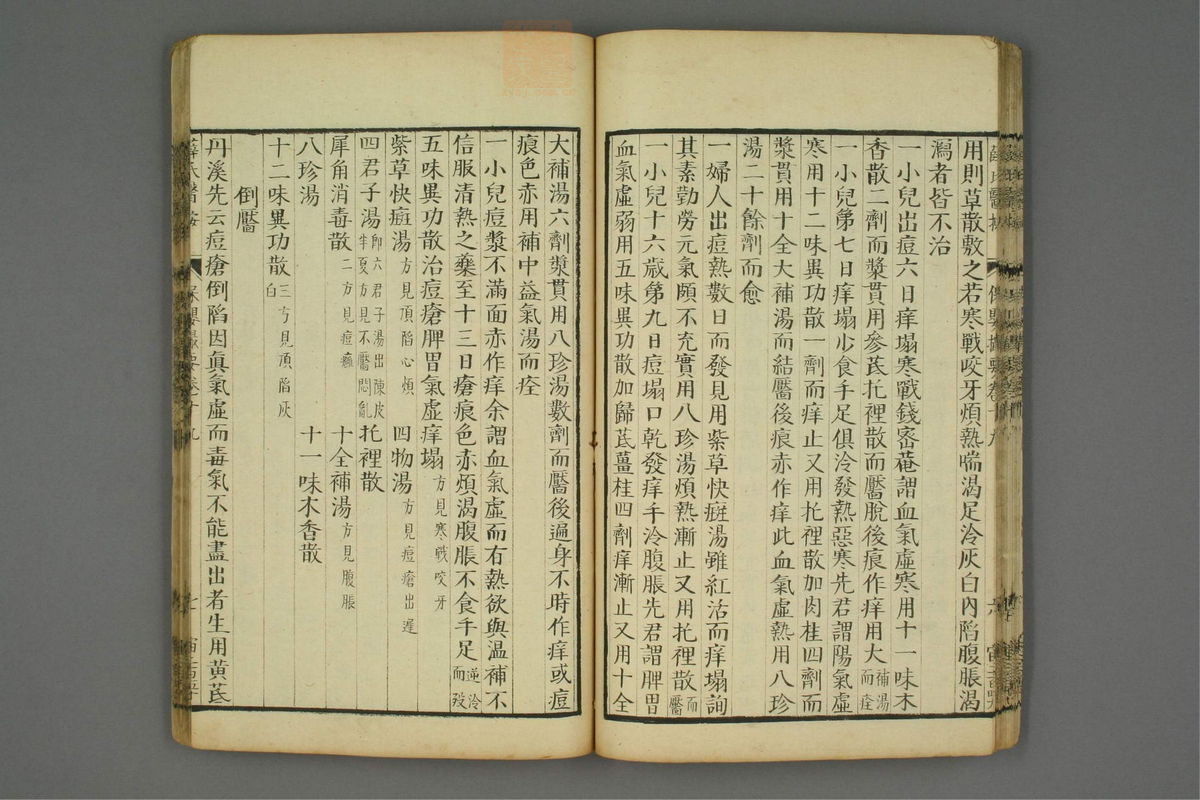 用則草散敷之若寒戰咬牙煩熱喘渴足冷灰白內陷腹脹渴
瀉者皆不治
一小兒出痘六日痒塌寒戰錢密菴謂血氣虛寒用十一味木
香散二劑而漿貫用參芪托裡散而靨脫後痕作痒用大補湯而痊
一小兒第七日痒塌少食手足俱冷發熱惡寒先君謂陽氣虛
寒用十二味異功散一劑而痒止又用托裡散加肉桂四劑而
漿貫用十全大補湯而結靨後痕赤作痒此血氣虛熱用八珍
湯二十餘劑而愈
一婦人出痘熱數日而發見用紫草快癍湯雖紅活而痒塌詢
其素勤勞元氣頗不充實用八珍湯煩熱漸止又用托裡散而靨
一小兒十六歲第九日痘塌口乾發痒手冷腹脹先君謂脾胃
血氣虛弱用五味異功散加歸芪薑桂四劑痒漸止又用十全
大補湯六劑漿貫用八珍湯數劑而靨後遍身不時作痒或痘
痕色赤用補中益氣湯而痊
一小兒痘漿不滿面赤作痒余謂血氣虛而有熱欲與温補不
信服清熱之藥至十三日瘡痕色赤煩渴腹脹不食手足逆冷而歿
五味異功散治痘瘡脾胃氣虛痒塌方見寒戰咬牙
紫草快癍湯方見頂陷心煩 四物湯方見痘瘡出遲
四君子湯即六君子湯出陳皮半夏方見不靨悶亂 托裡散
犀角消毒散二方見痘癰 十全補湯方見腹脹
八珍湯 十一味木香散
十二味異功散三方見頂陷灰白
倒靨
丹溪先云痘瘡倒陷因眞氣虛而毒氣不能盡出者生用黄芪